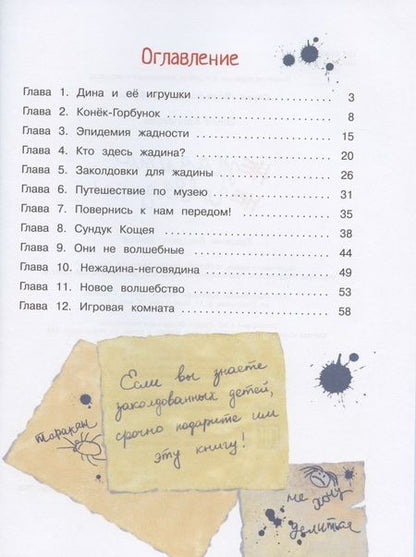 Оглавление
Глава 1. Дина и её игрушки 3
Глава 2. Конёк-Горбунок 8
Глава 3. Эпидемия жадности 15
Глава 4. Кто здесь жадина? 20
Глава 5. Заколдовки для жадины 26
Глава 6. Путешествие по музею 31
Глава 7. Повернись к нам передом! 35
Глава 8. Сундук Кощея 38
Глава 9. Они не волшебные 44
Глава 10. Нежадина-неговядина 49
Глава 11. Новое волшебство 53
Глава 12. Игровая комната 58
Если вы знаете
заколдованных детей,
срочно подарите им
эту книгу!
таракан
не хочу
делиться